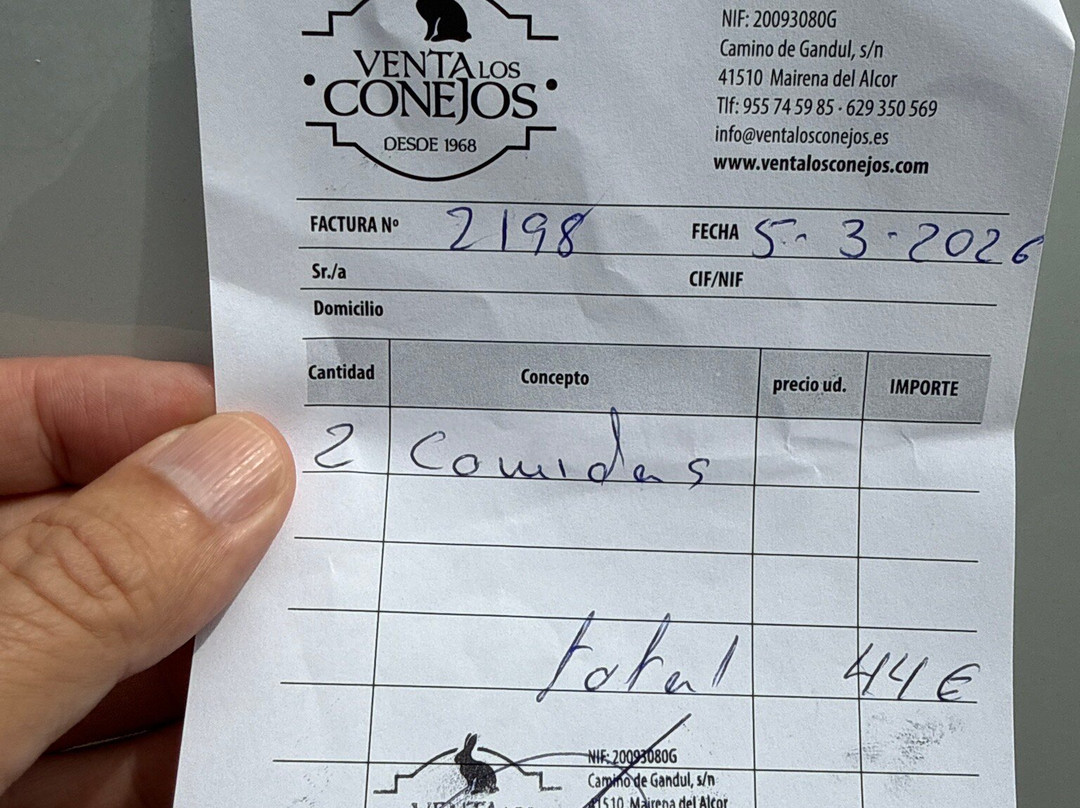 VENTA LOS
CONEJOS
DESDE 1968
NIF: 20093080G
Camino de Gandul, s/n
41510 Mairena del Alcor
Tlf: 955 74 59 85 · 629 350 569
info@ventalosconejos.es
www.ventalosconejos.com
FACTURA Nº 2198 FECHA 5-3-2026
Sr./a CIF/NIF
Domicilio
Cantidad Concepto precio ud. IMPORTE
2 Comidas
total 44€
NIF: 20093080G
Camino de Gandul, s/n
41510 Mairena del Alcor